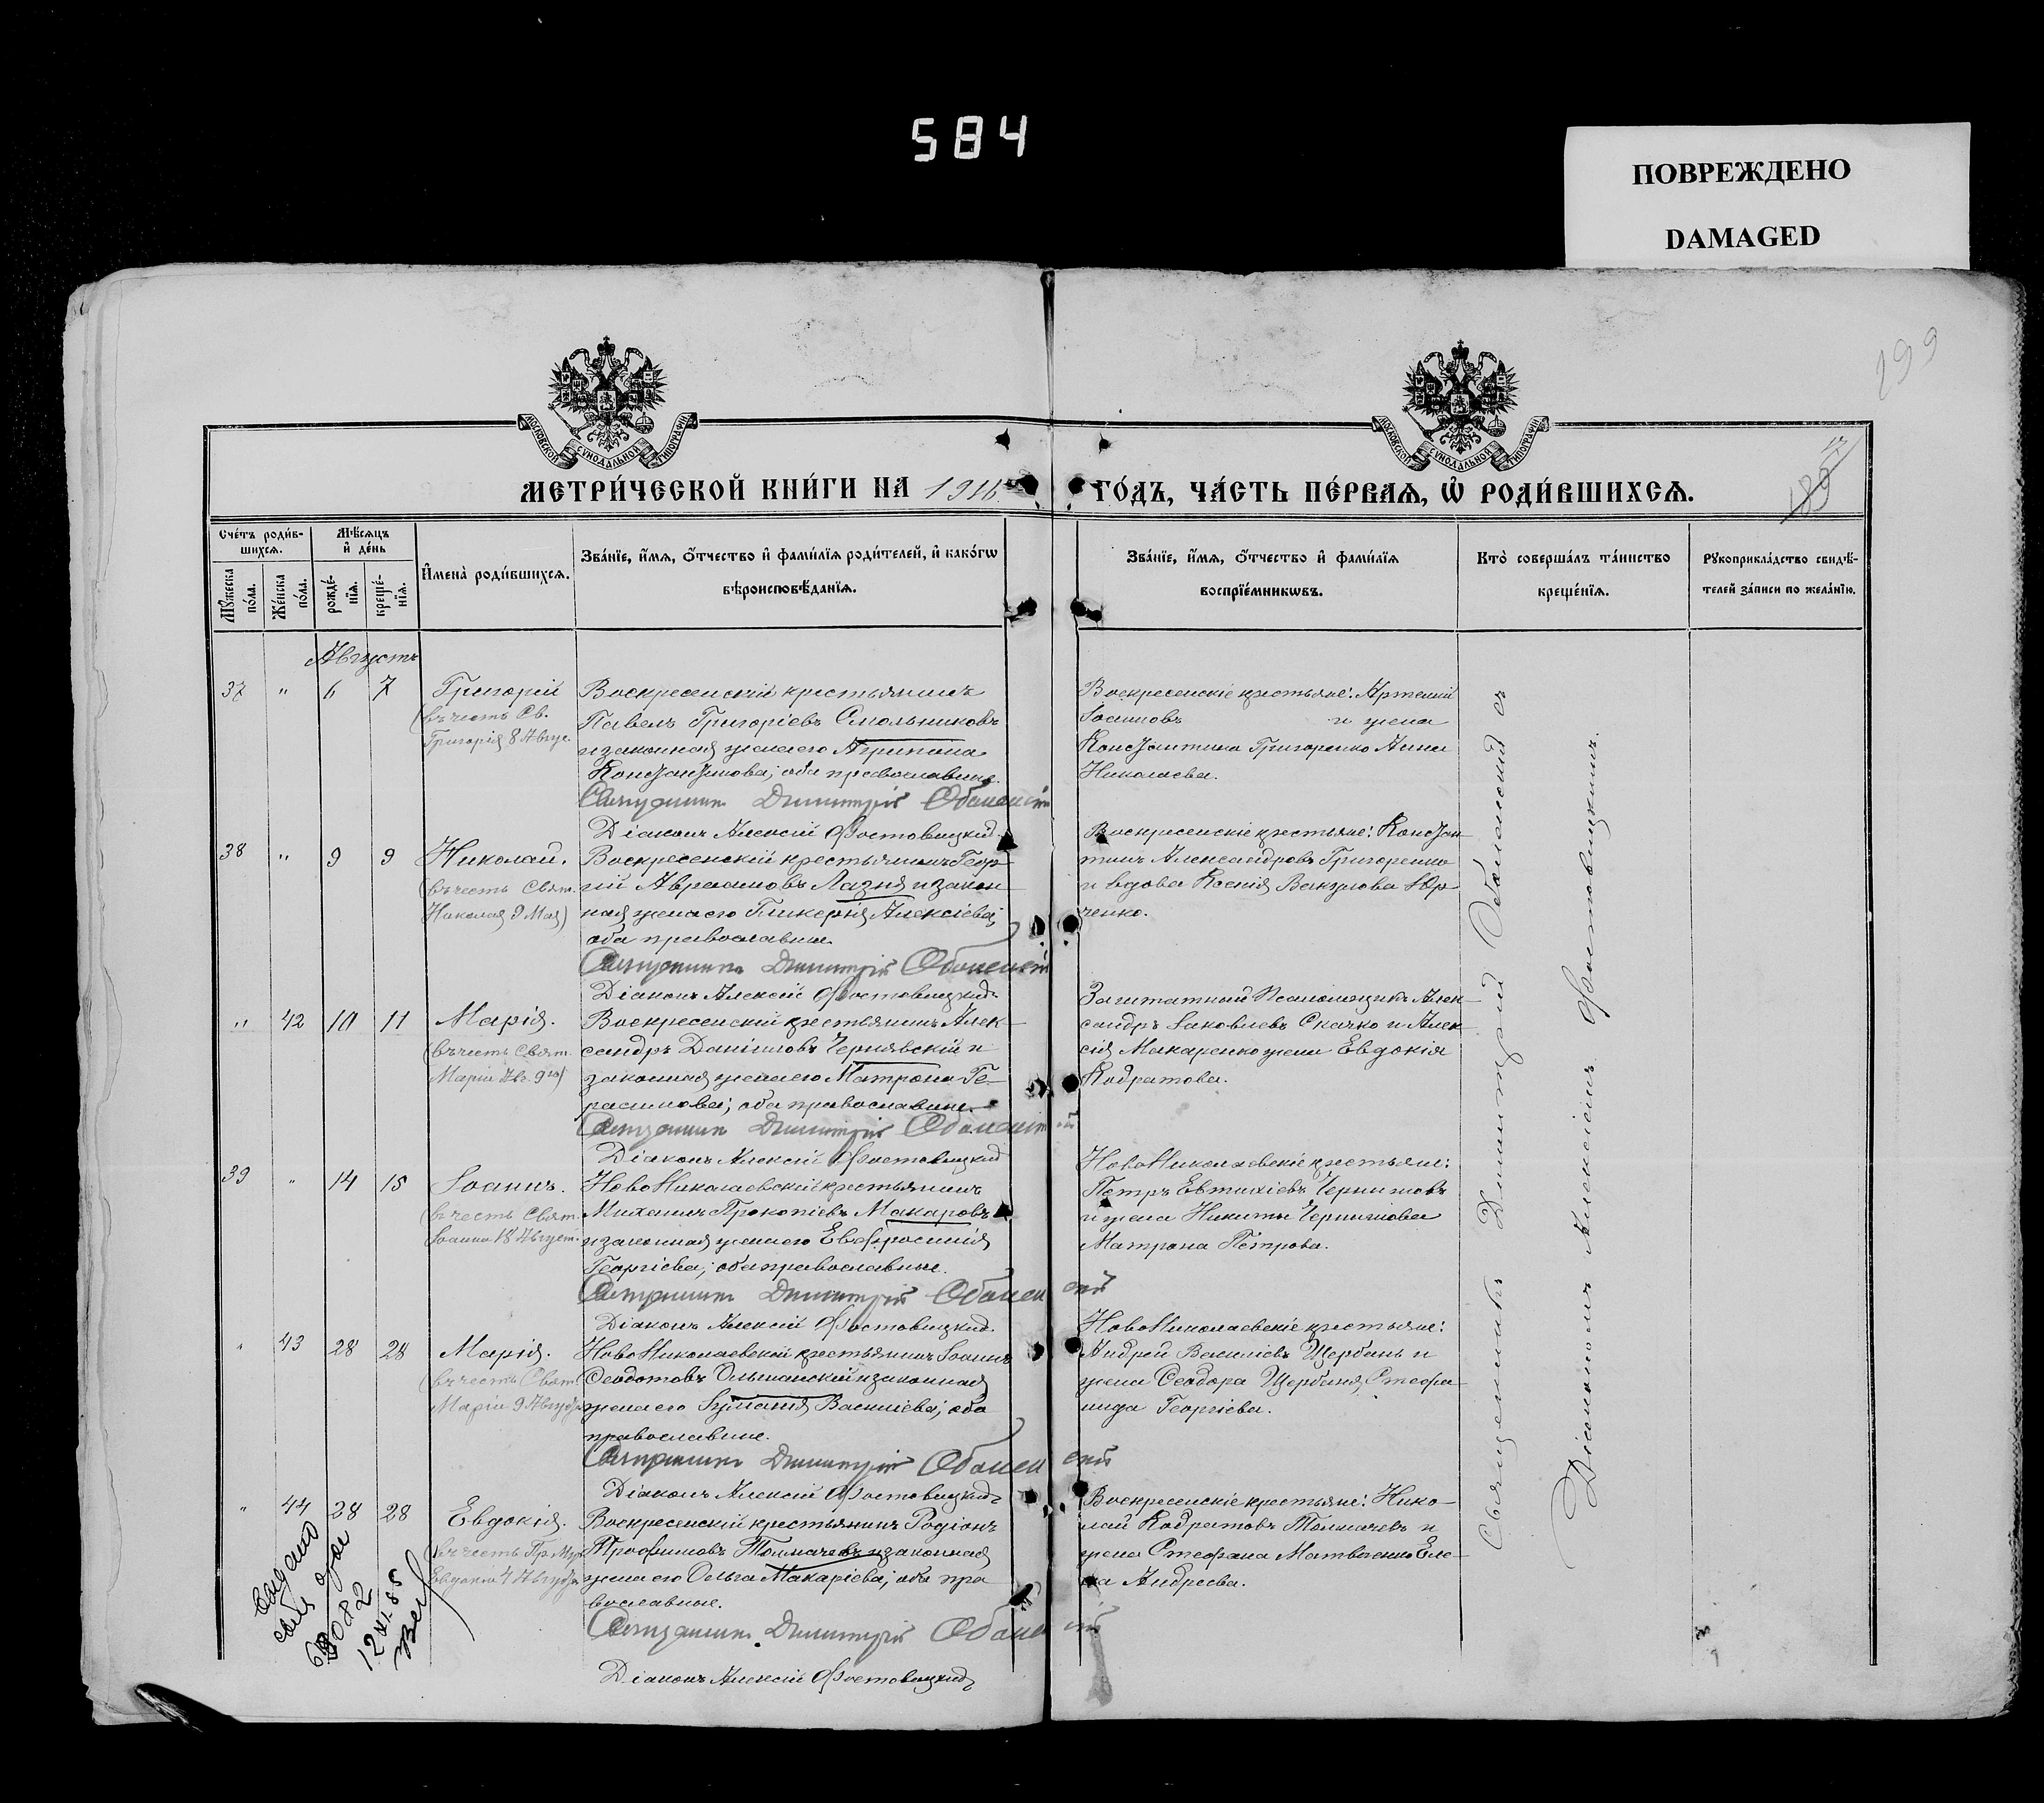 584
ПОВРЕЖДЕНО
DAMAGED
199
МОСКОВСКОЙ СУНОДАЛЬНОЙ ТИПОГРАФІИ
МОСКОВСКОЙ СУНОДАЛЬНОЙ ТИПОГРАФІИ
МЕТРИ́ЧЕСКОЙ КНИ́ГИ НА 1916
ГО́ДЪ, ЧА́СТЬ ПЕ́РВАЯ, Ѡ҆ РОДИ́ВШИХСЯ.
Сче́тъ роди́в-
шихся.
Мѣ́сяцъ
и҆ де́нь
Му́жеска
по́ла.
Же́нска
по́ла.
рожде́-
нїя.
креще́-
нїя.
И҆мена̀ роди́вшихся.
Зва́нїе, и҆́мя, ѻ҆́тчество и҆ фами́лїя роди́телей, и҆ како́гѡ
вѣроисповѣ́данїя.
Зва́нїе, и҆́мя, ѻ҆́тчество и҆ фами́лїя
воспрїе́мникѡвъ.
Кто̀ соверша́лъ та́инство
креще́нїя.
Рукоприкла́дство свидѣ́-
телей за́писи по жела́нїю.
Августъ
37 " 6 7 Григорій
(въ честь Св.
Григорія 8 Авгус.
Воскресенскій крестьянинъ
Павелъ Григоріевъ Смольниковъ
и законная жена его Агрипина
Константинова; оба православные.
Священникъ Димитрій Оболенскій
Діаконъ Алексій Фостовицкій
Воскресенскіе крестьяне: Артемій
Іоанновъ и жена
Константина Григоренко Анна
Николаева.
38 " 9 9 Николай.
(въ честь Свят.
Николая 9 Мая)
Воскресенскій крестьянинъ Геор-
гій Авраамовъ Лазня и закон-
ная жена его Гликерія Алексіева;
оба православные.
Священникъ Димитрій Оболенскій
Діаконъ Алексій Фостовицкій
Воскресенскіе крестьяне: Констан-
тинъ Александровъ Григоренко
и вдова Ксенія Вакулова Юр-
ченко.
" 42 10 11 Марія.
(въ честь Свят.
Маріи Ав. 9го)
Воскресенскій крестьянинъ Алек-
сандръ Даніиловъ Чернявскій и
законная жена его Матрона Ге-
расимова; оба православные.
Священникъ Димитрій Оболенскій
Діаконъ Алексій Фостовицкій
Заштатный Псаломщикъ Алек-
сандръ Іаковлевъ Скачко и Алек-
сія Макаренко жена Евдокія
Кодратова.
39 " 14 15 Іоаннъ.
(въ честь Свят.
Іоанна 18 Август.
НовоНиколаевскій крестьянинъ
Михаилъ Прокопіевъ Макаровъ
и законная жена его Евфросинія
Георгіева; оба православные.
Священникъ Димитрій Оболенскій
Діаконъ Алексій Фостовицкій
НовоНиколаевскіе крестьяне:
Петръ Евтихіевъ
и жена Никиты
Матрона Петрова.
" 43 28 28 Марія.
(въ честь Свят.
Маріи 9 Августа
НовоНиколаевскій крестьянинъ Іоаннъ
Ѳеодотовъ Ольшанскій и законная
жена его Іуліанія Василіева; оба
православные.
Священникъ Димитрій Оболенскій
Діаконъ Алексій Фостовицкій
НовоНиколаевскіе крестьяне:
Андрей Василіевъ Щербань и
жена Ѳеодора Щербаня, Стефа-
нида Георгіева.
" 44 28 28 Евдокія.
(въ честь Пр. Муч.
Евдокіи 4 Августа
Воскресенскій крестьянинъ Родіонъ
Трофимовъ Толмачевъ и законная
жена его Ольга Макаріева; оба пра-
вославные.
Священникъ Димитрій Оболенскій
Діаконъ Алексій Фостовицкій
Воскресенскіе крестьяне: Нико-
лай Кодратовъ Толмачевъ и
жена Стефана Матвѣенко Еле-
на Андреева.
Священникъ Димитрій Оболенскій съ
Діакономъ Алексіемъ Фостовицкимъ.